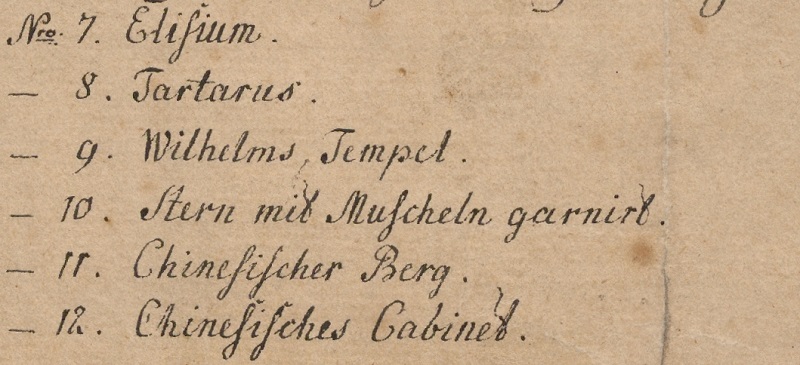 Nro. 7. Elisium.
— 8. Tartarus.
— 9. Wilhelms, Tempel.
— 10. Stern mit Muscheln garnirt.
— 11. Chinesischer Berg.
— 12. Chinesisches Cabinet.